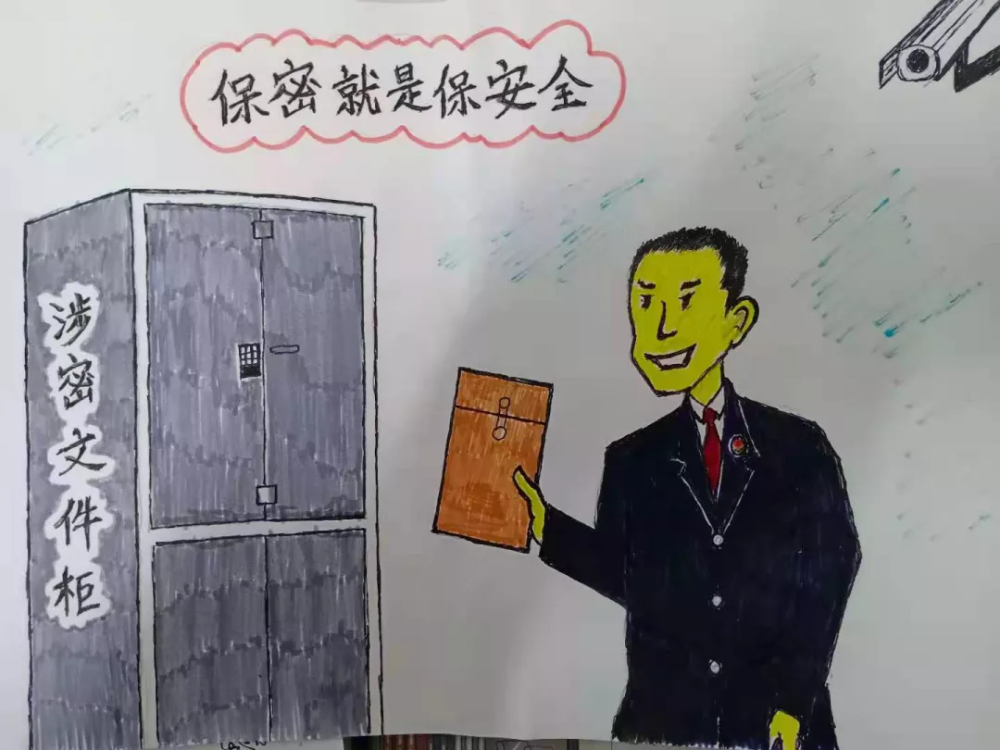 保密就是保安全
涉密文件柜